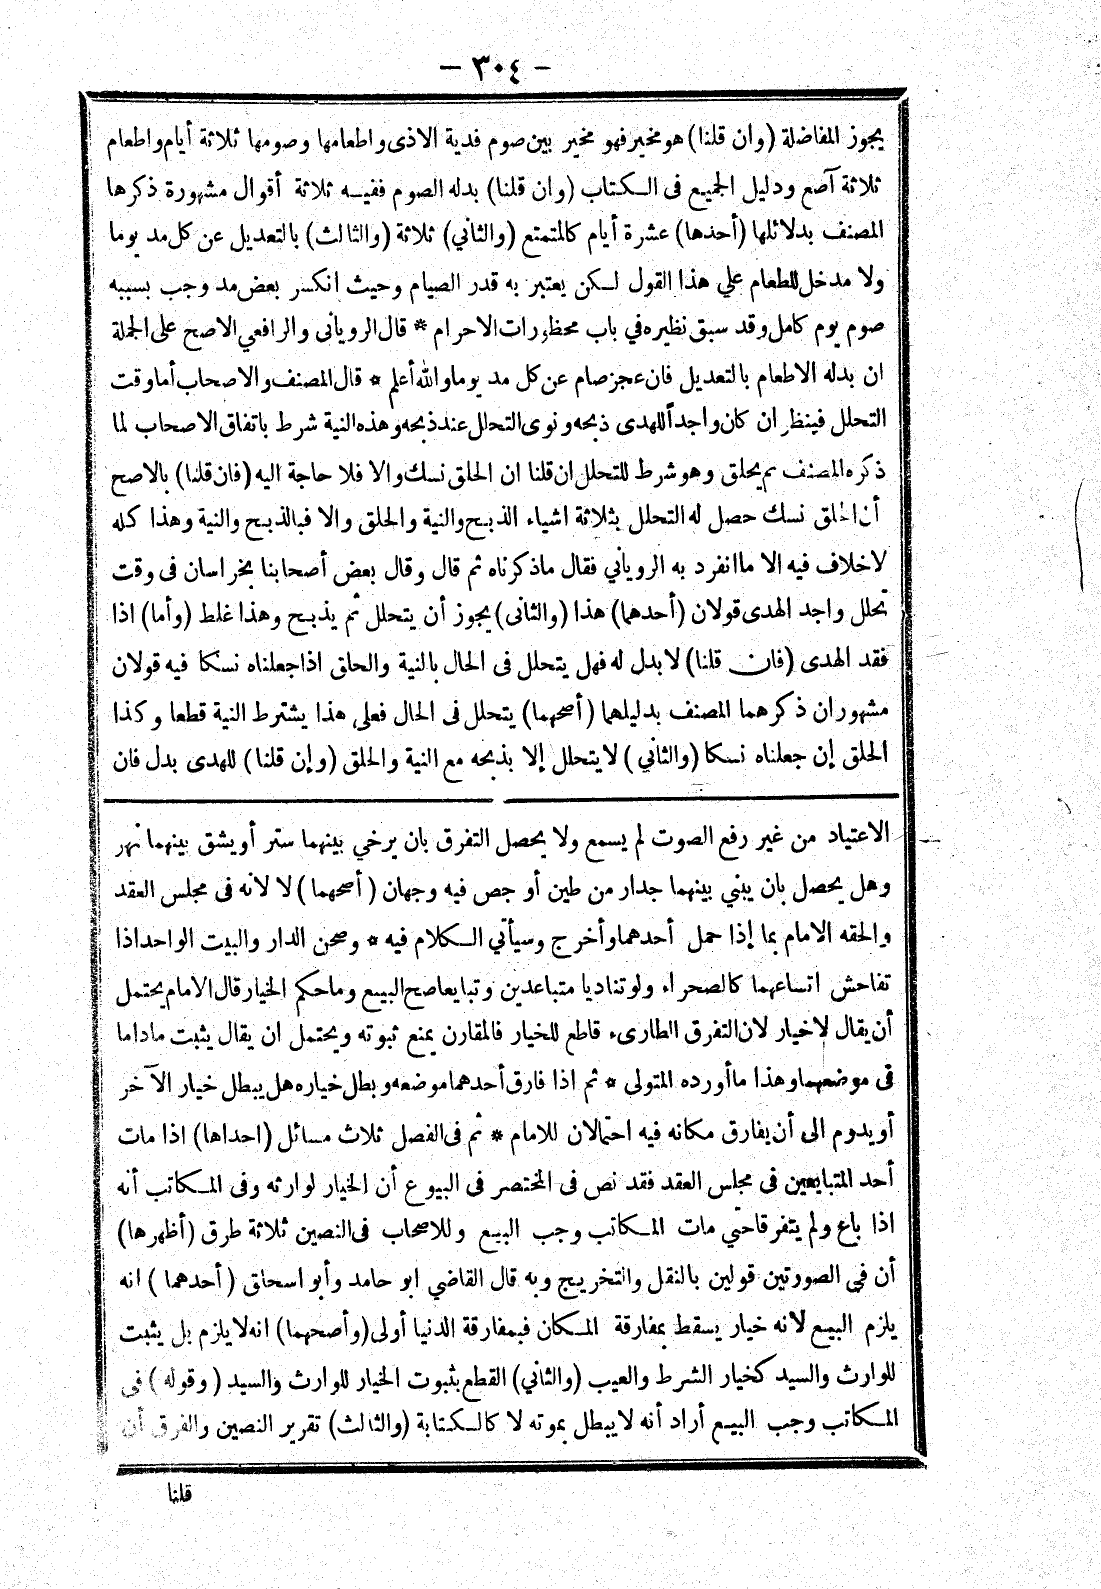 – ٣٠٤ –
يجوز المفاضلة (وان قلنا) هو مخير فهو مخير بين صوم فدية الاذى واطعامها وصومها ثلاثة أيام واطعام
ثلاثة آصع ودليل الجميع فى الكتاب (وان قلنا) بدله الصوم ففيه ثلاثة أقوال مشهورة ذكرها
المصنف بدلائلها (أحدها) عشرة أيام كالمتمتع (والثاني) ثلاثة (والثالث) بالتعديل عن كل مد يوما
ولا مدخل للطعام علي هذا القول لكن يعتبر به قدر الصيام وحيث انكسر بعض مد وجب بسببه
صوم يوم كامل وقد سبق نظيره في باب محظورات الاحرام * قال الرويانى والرافعي الاصح على الجملة
ان بدله الاطعام بالتعديل فان عجز صام عن كل مد يوما والله أعلم * قال المصنف والاصحاب أما وقت
التحلل فينظر ان كان واجداً للهدى ذبحه ونوى التحلل عند ذبحه وهذه النية شرط باتفاق الاصحاب لما
ذكره المصنف ثم يحلق وهو شرط للتحلل ان قلنا ان الحلق نسك والا فلا حاجة اليه (فان قلنا) بالاصح
أن الحلق نسك حصل له التحلل بثلاثة اشياء الذبح والنية والحلق والا فبالذبح والنية وهذا كله
لاخلاف فيه الا ماانفرد به الروياني فقال ماذكرناه ثم قال وقال بعض أصحابنا بخراسان فى وقت
تحلل واجد الهدى قولان (أحدهما) هذا (والثانى) يجوز أن يتحلل ثم يذبح وهذا غلط (وأما) اذا
فقد الهدى (فان قلنا) لا بدل له فهل يتحلل فى الحال بالنية والحلق اذا جعلناه نسكا فيه قولان
مشهوران ذكرهما المصنف بدليلهما (أصحهما) يتحلل فى الحال فعلي هذا يشترط النية قطعا وكذا
الحلق إن جعلناه نسكا (والثاني) لا يتحلل إلا بذبحه مع النية والحلق (وإن قلنا) للهدى بدل فان
الاعتياد من غير رفع الصوت لم يسمع ولا يحصل التفرق بان يرخي بينهما ستر أو يشق بينهما نهر
وهل يحصل بان يبني بينهما جدار من طين أو جص فيه وجهان (أصحهما) لا لانه فى مجلس العقد
والحقه الامام بما إذا حمل أحدهما وأخرج وسيأتي الكلام فيه * وصحن الدار والبيت الواحد اذا
تفاحش اتساعهما كالصحراء ولو تناديا متباعدين وتبايعا صح البيع وما حكم الخيار قال الامام يحتمل
أن يقال لا خيار لان التفرق الطارىء قاطع للخيار فالمقارن يمنع ثبوته ويحتمل ان يقال يثبت ماداما
فى موضعهما وهذا ما أورده المتولى * ثم اذا فارق أحدهما موضعه وبطل خياره هل يبطل خيار الآخر
أو يدوم الى أن يفارق مكانه فيه احتمالان للامام * ثم فى الفصل ثلاث مسائل (احداها) اذا مات
أحد المتبايعين فى مجلس العقد فقد نص فى المختصر فى البيوع أن الخيار لوارثه وفى المكاتب أنه
اذا باع ولم يتفرقا حتي مات المكاتب وجب البيع وللاصحاب فى النصين ثلاثة طرق (أظهرها)
أن في الصورتين قولين بالنقل والتخريج وبه قال القاضي ابو حامد وأبو اسحاق (أحدهما) انه
يلزم البيع لانه خيار يسقط بمفارقة المكان فبمفارقة الدنيا أولى (وأصحهما) انه لا يلزم بل يثبت
للوارث والسيد كخيار الشرط والعيب (والثاني) القطع بثبوت الخيار للوارث والسيد (وقوله) فى
المكاتب وجب البيع أراد أنه لا يبطل بموته لا كالكتابة (والثالث) تقرير النصين والفرق أن
قلنا